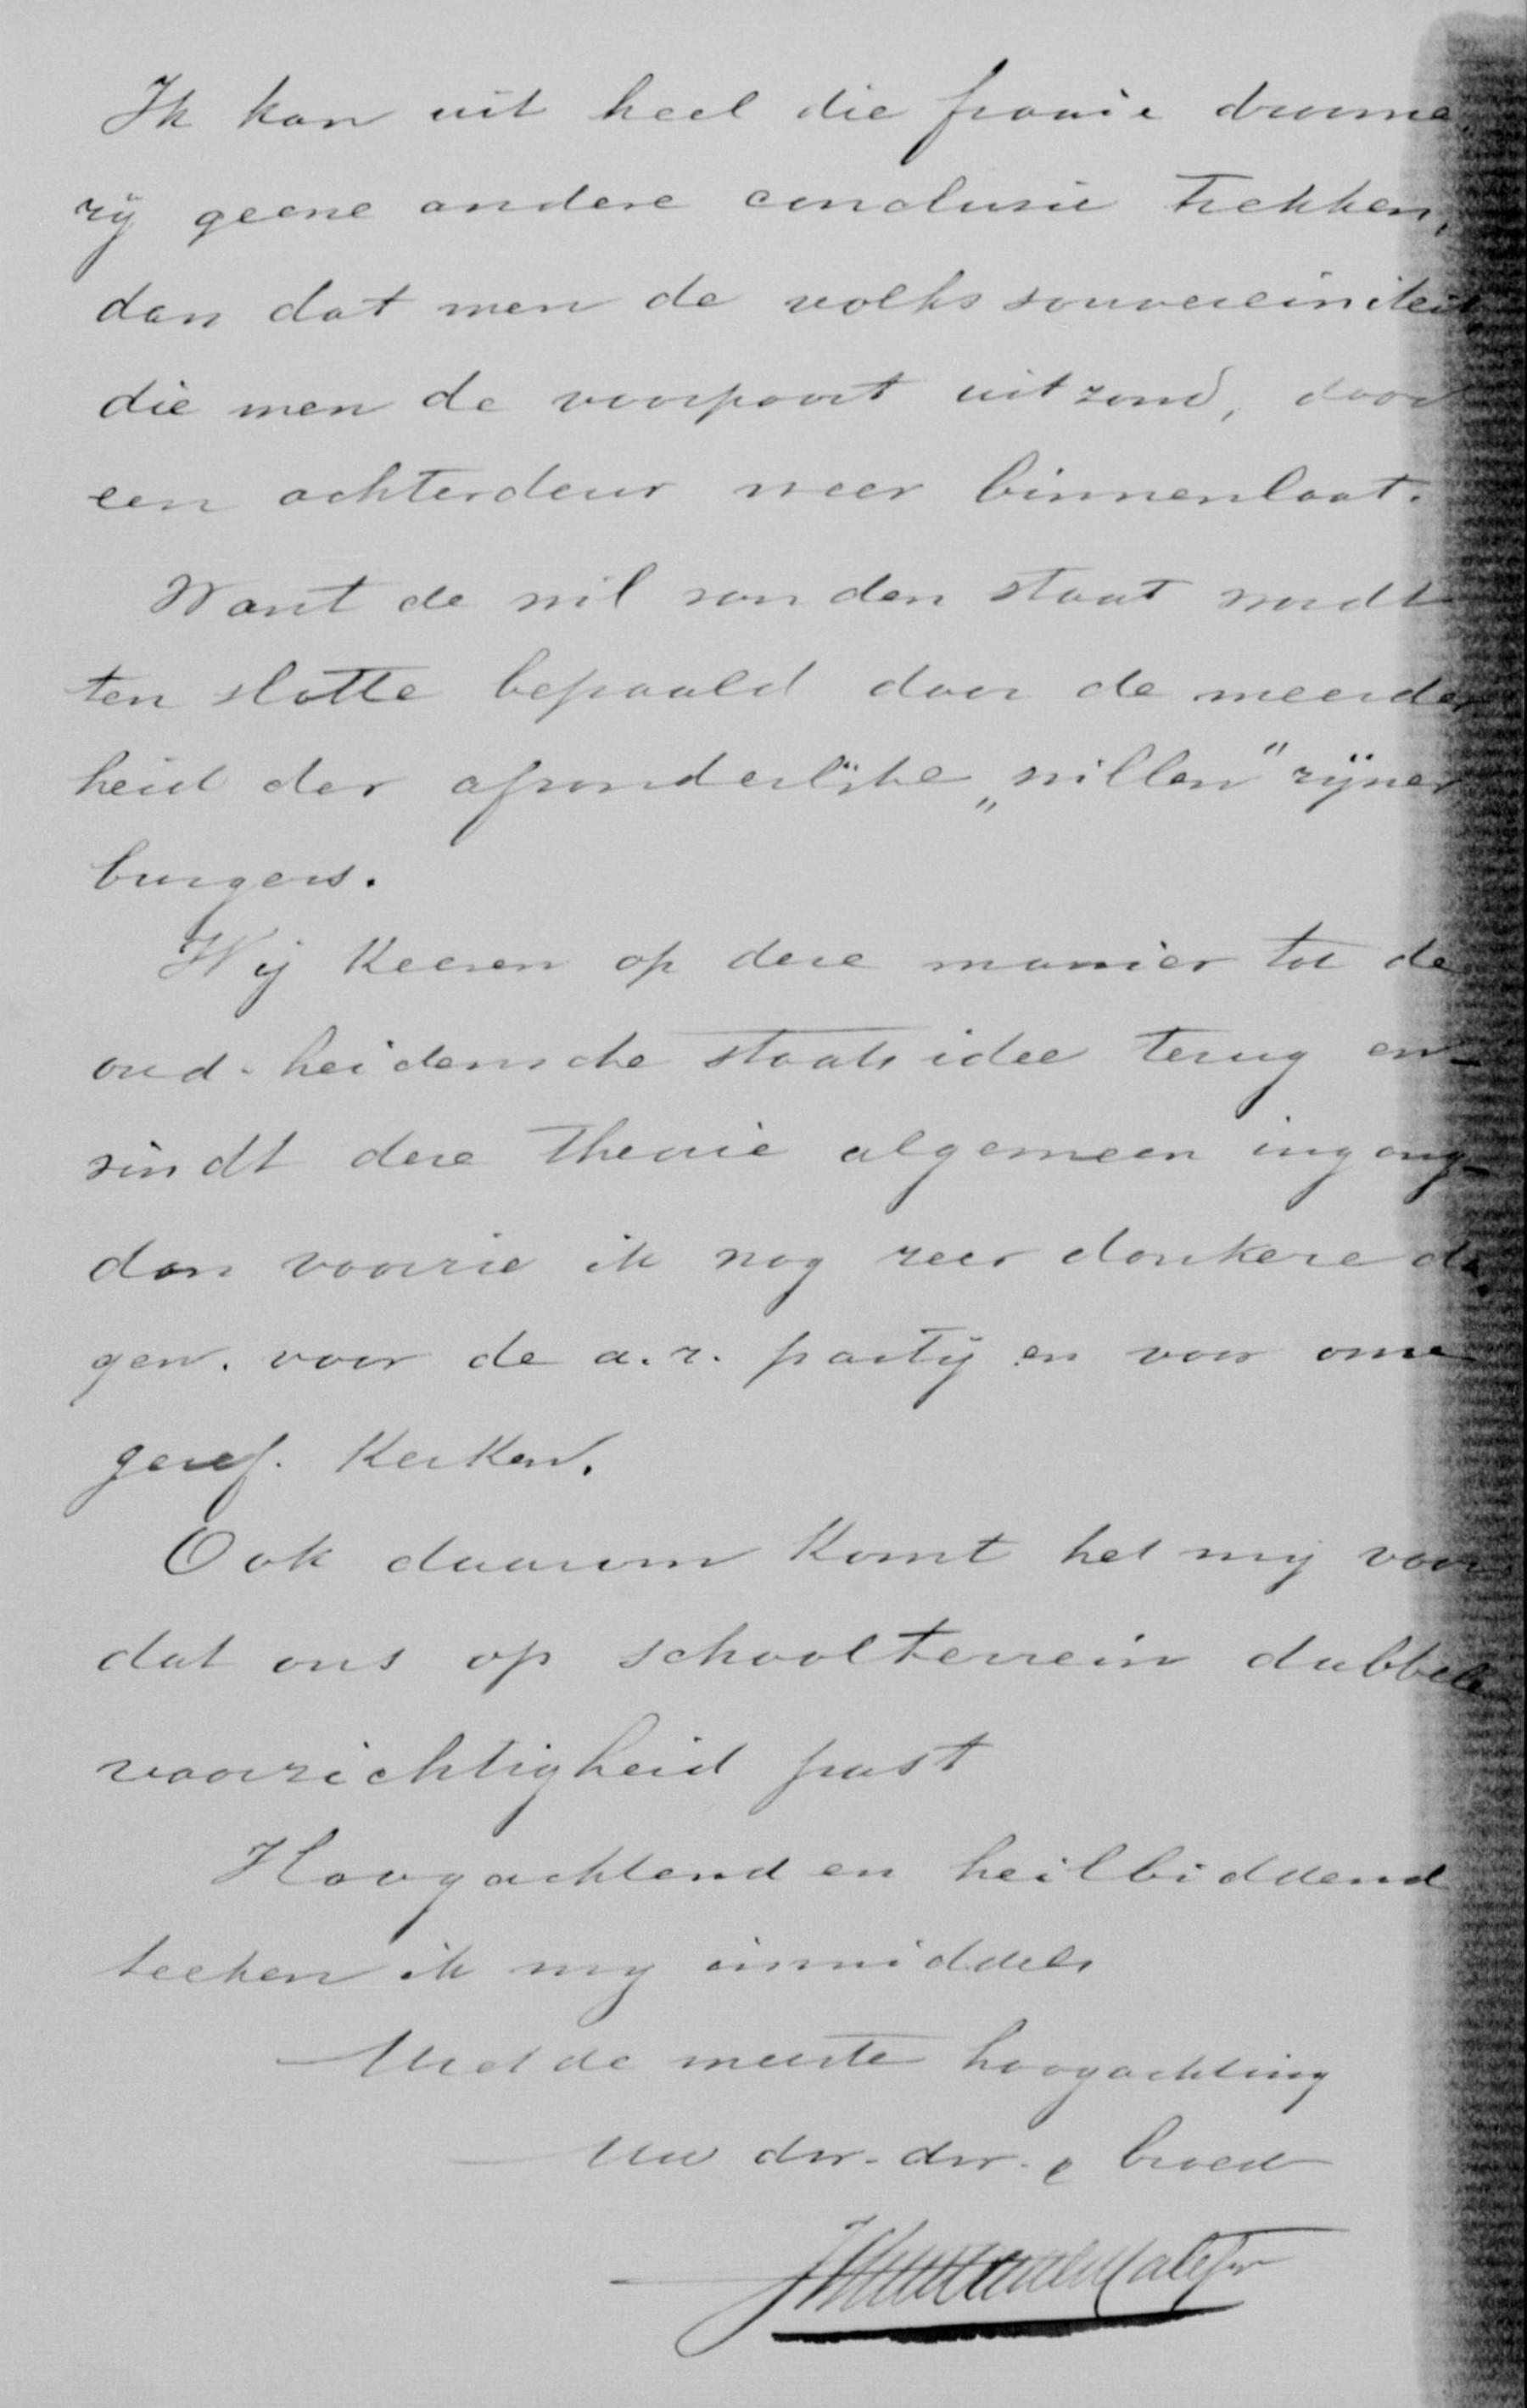 Ik kan uit heel die fraaie droome
rij geene andere conclusie trekken,
dan dat men de volkssouvereiniteit,
die men de voorpoort uitzond, door
een achterdeur weer binnenlaat.
Want de wil van den staat wordt
ten slotte bepaald door de meerder
heid der afzonderlijke „willen" zijner
burgers.
Wij keeren op deze manier tot de
oud-heidensche staatsidee terug en
vindt deze theorie algemeen ingang
dan voorzie ik nog zeer donkere da
gen voor de a.r. partij en voor onze
geref. Kerken.
Ook daarom komt het mij voor
dat ons op schoolterrein dubbele
voorzichtigheid past
Hoogachtend en heilbiddend
teeken ik mij inmiddels
Met de meeste hoogachting
Uw dw. dr. e broed